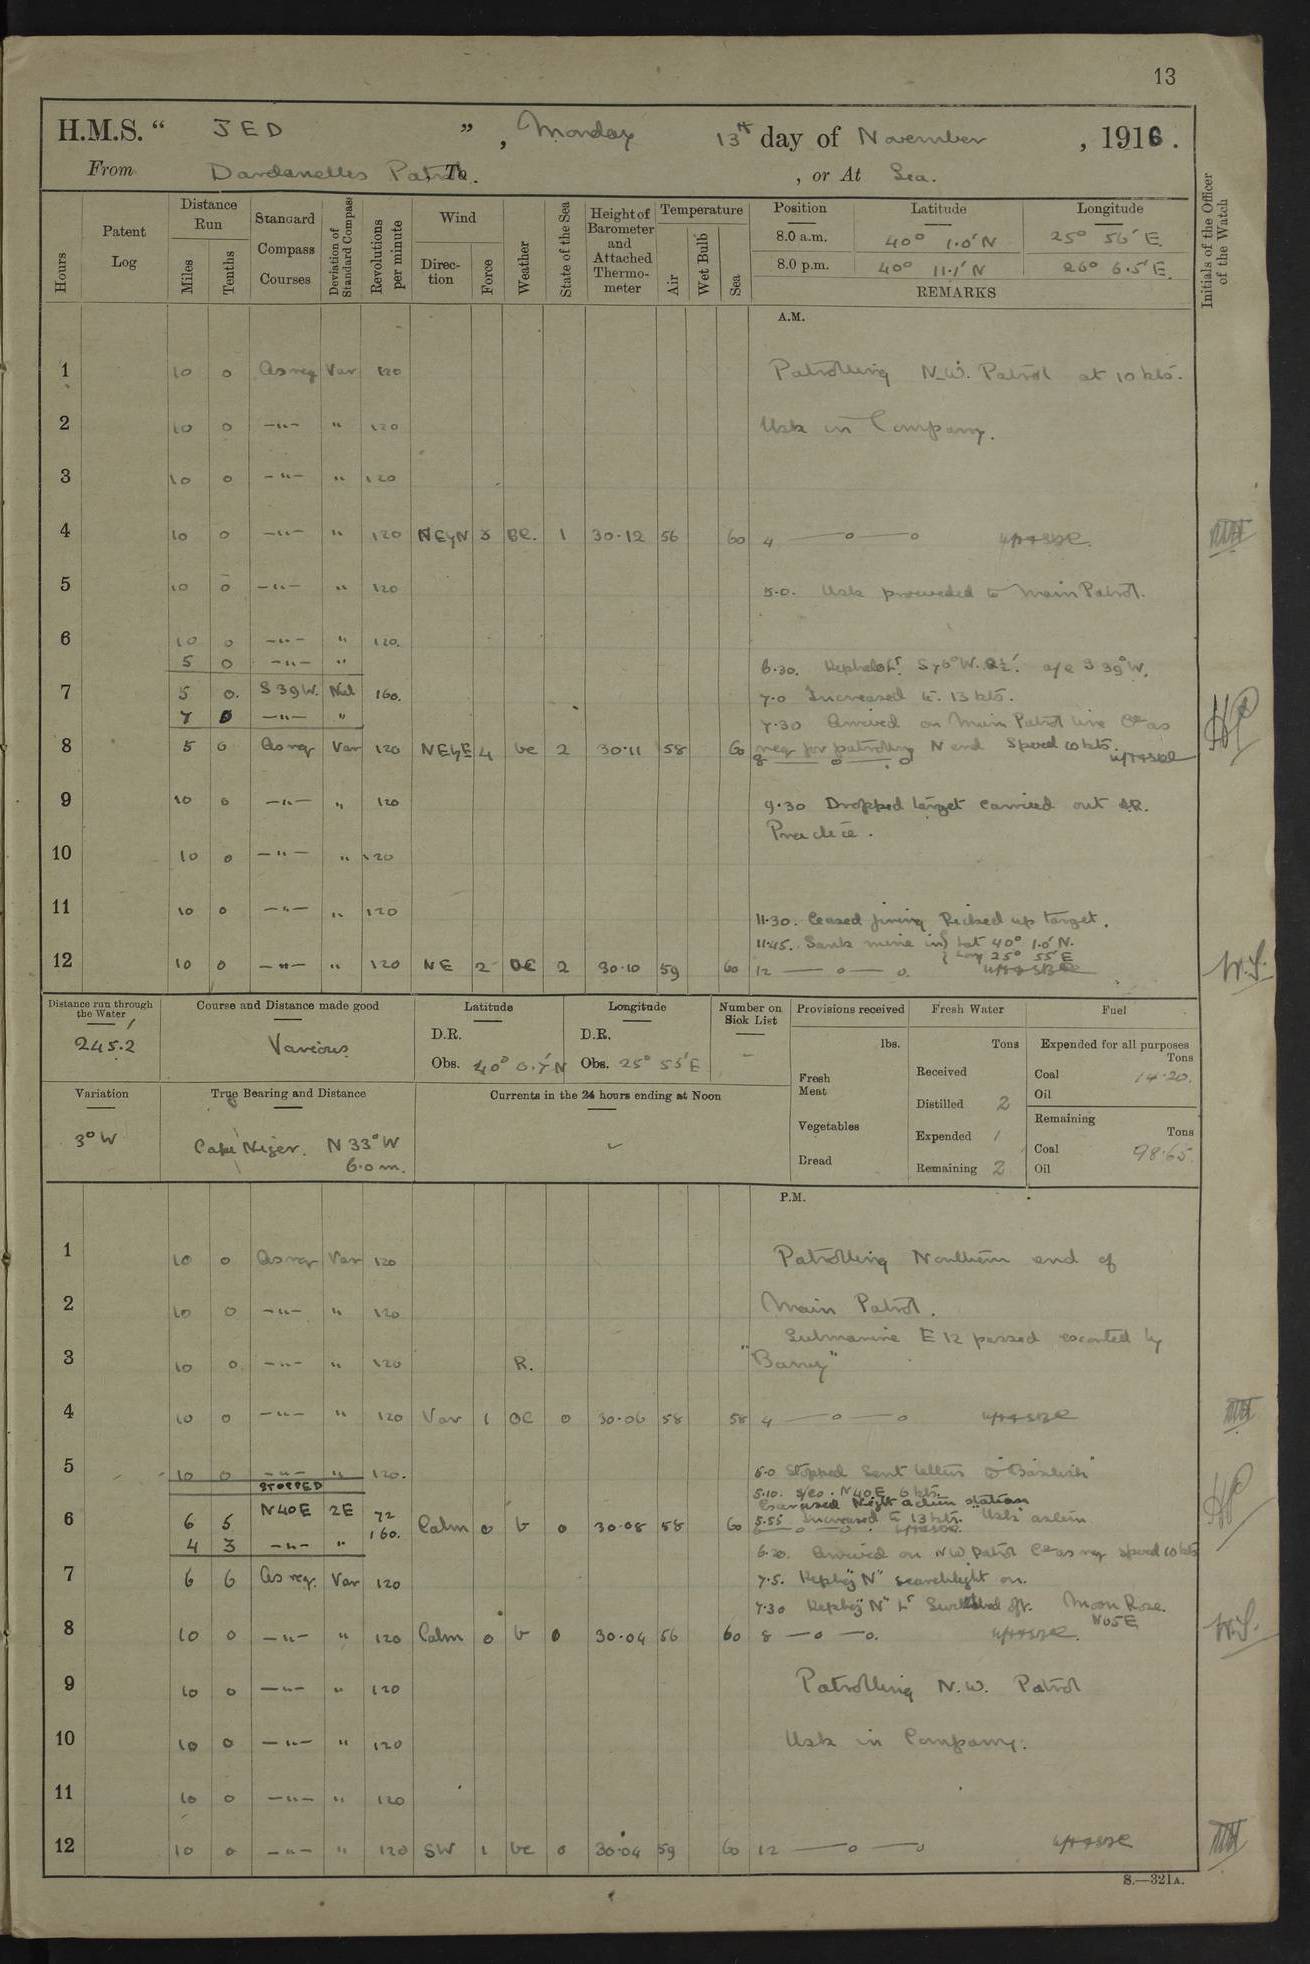 13
H.M.S. " JED ", Monday 13th day of November, 1916.
From Dardanelles Patrol, To , or At Sea.
Hours
Patent Log
Distance Run
Miles
Tenths
Standard Compass Courses
Deviation of Standard Compass
Revolutions per minute
Wind
Direction
Force
Weather
State of the Sea
Height of Barometer and Attached Thermometer
Temperature
Air
Wet Bulb
Sea
Position Latitude Longitude
8.0 a.m. 40° 1.0' N 25° 56' E.
8.0 p.m. 40° 11.1' N 26° 6.5' E.
REMARKS
Initials of the Officer of the Watch
A.M.
1 10 0 As req Var 120 Patrolling N.W. Patrol at 10 kts.
2 10 0 —"— " 120 Usk in Company.
3 10 0 —"— " 120
4 10 0 —"— " 120 NEyN 3 BC. 1 30.12 56 60 4 —o—o
5 10 0 —"— " 120 5.0. Usk proceeded to Main Patrol.
6 10 0 —"— " 120.
5 0 —"— " 6.30. S 76° W. a/c S 39° W.
7 5 0. S 39 W. Nil 160. 7.0 Increased to 13 kts.
7 0 —"— " 7.30 Arrived on Main Patrol line Co as
8 5 0 As req Var 120 NEyE 4 bc 2 30.11 58 60 req for patrolling N end Speed 10 kts.
8 —o—o
9 10 0 —"— " 120 9.30 Dropped target carried out
Practice.
10 10 0 —"— " 120
11 10 0 —"— " 120 11.30. Ceased firing Picked up target.
11.45. Sank mine in } Lat 40° 1.0' N.
} Long 25° 55' E
12 10 0 —"— " 120 NE 2 bc 2 30.10 59 60 12 —o—o
W.S.
Distance run through the Water
245.2
Course and Distance made good
Various
Latitude
D.R.
Obs. 40° 0.7' N
Longitude
D.R.
Obs. 25° 55' E
Number on Sick List
-
Provisions received
lbs.
Fresh Meat
Vegetables
Bread
Fresh Water
Tons
Received
Distilled 2
Expended 1
Remaining 2
Fuel
Expended for all purposes
Tons
Coal 14.20.
Oil
Remaining
Tons
Coal 98.65.
Oil
Variation
3° W
True Bearing and Distance
Cape Niger. N 33° W
6.0 m.
Currents in the 24 hours ending at Noon
P.M.
1 10 0 As req Var 120 Patrolling Northern end of
2 10 0 —"— " 120 Main Patrol.
Submarine E 12 passed escorted by
3 10 0 —"— " 120 R.
4 10 0 —"— " 120 Var 1 OC 0 30.06 58 58 4 —o—o
5 10 0 —"— " 120. 5.0 Stopped Sent letters to
STOPPED
5.10. N 40 E 6 kts.
Exercised Night action stations
6 6 5 N 40 E 2 E 72 Calm 0 b 0 30.08 58 60 5.55 Increased to 13 kts. "Usk" astern
4 3 —"— " 160.
6.20. Arrived on NW Patrol Co as req speed 10 kts
7 6 6 As req. Var 120 7.5. "N" searchlight on.
7.30 "N" Lt Switched off. Moon Rose.
N 05 E
8 10 0 —"— " 120 Calm 0 b 0 30.04 56 60 8 —o—o.
W.S.
9 10 0 —"— " 120 Patrolling N.W. Patrol
10 10 0 —"— " 120 Usk in Company.
11 10 0 —"— " 120
12 10 0 —"— " 120 SW 1 bc 0 30.04 59 60 12 —o—o
S.—321A.